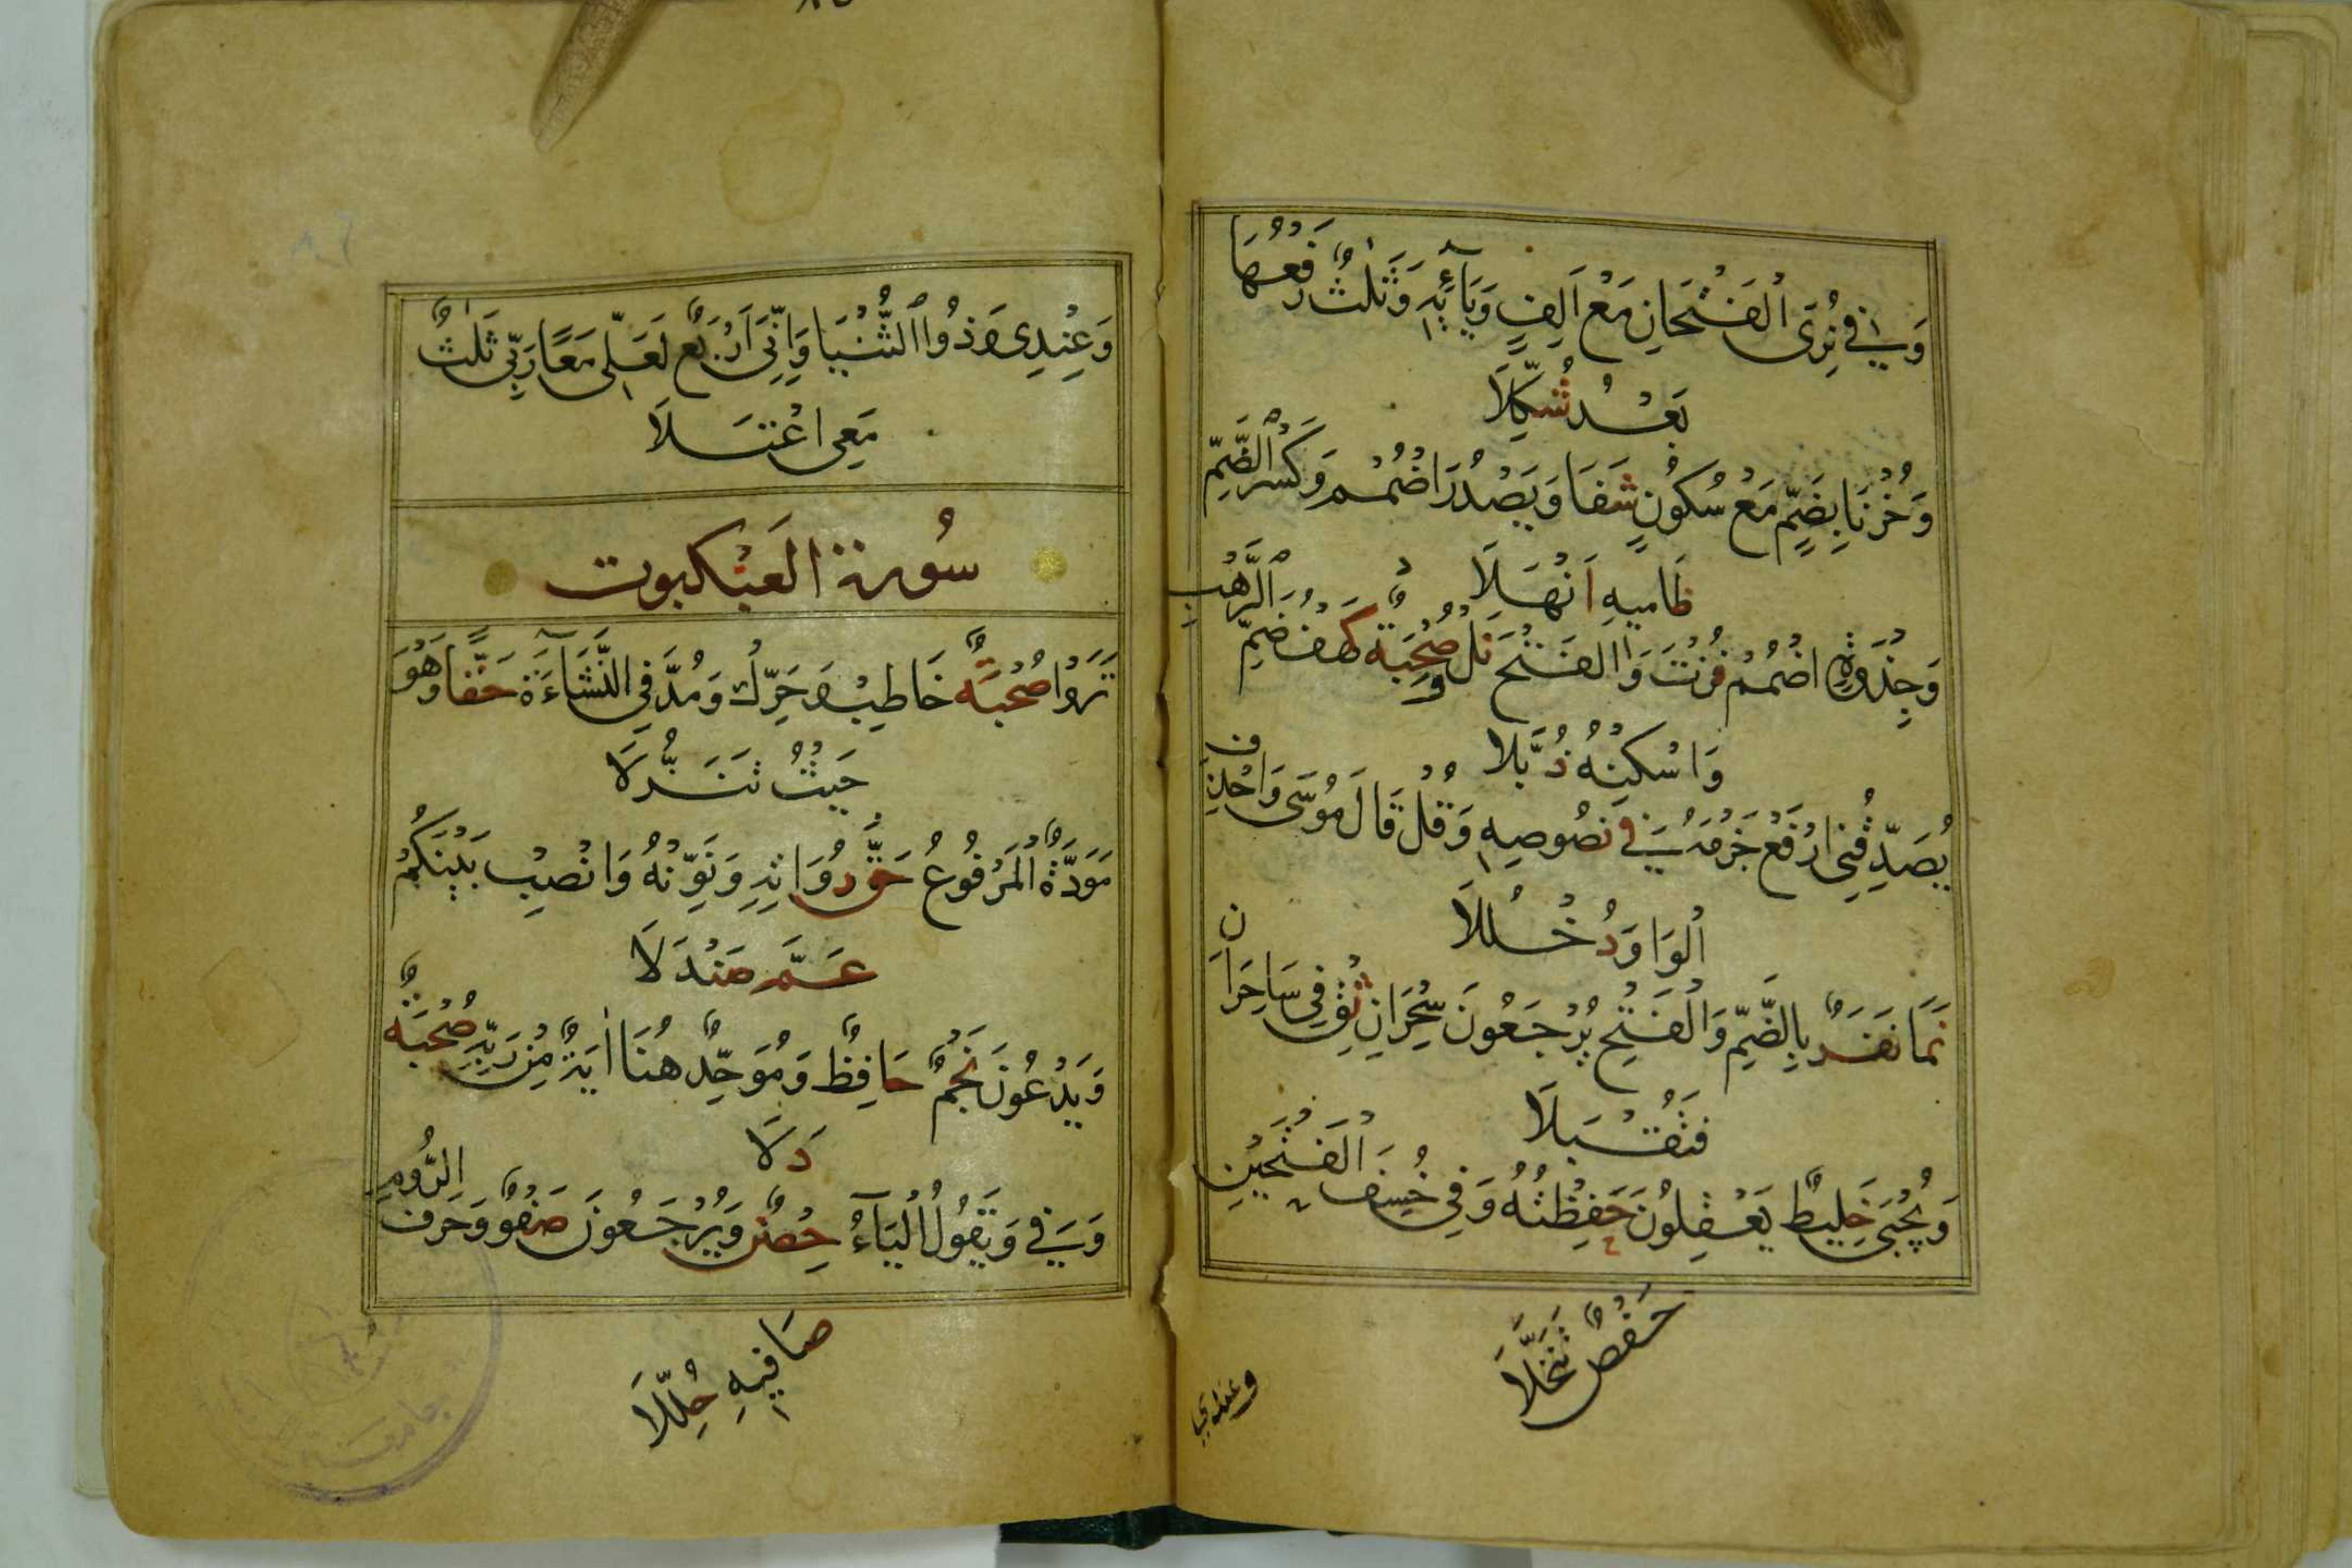 وَفِي نُرِيَ الْفَتْحَانِ مَعْ اَلِفٍ وَيَائِهِ وَثَلٰثٌ رَفْعُهَا
بَعْدُ شُكِّلَا
وَحُزْنًا بِضَمٍّ مَعْ سُكُونٍ شَفَا وَيَصْدُرَ اضْمُمْ وَكَسْرُ الضَّمِّ
ظَامِيهِ اَنْهَلَا
وَجِذْوَةٍ اضْمُمْ فُزْتَ وَالْفَتْحَ نَلْ وَصُحْبَةٌ كَهْفُ ضَمِّ الرَّهْبِ
وَاسْكِنْهُ ذُبَّلَا
يُصَدِّقُنِي ارْفَعْ جَزْمَهُ فِي نُصُوصِهِ وَقُلْ قَالَ مُوسَى وَاحْذِفِ
الْوَاوَ دُخْلُلَا
نَمَا نَفَرٌ بِالضَّمِّ وَالْفَتْحِ يُرْجَعُونَ سِحْرَانِ ثِقْ فِي سَاحِرَانِ
فَتُقْبَلَا
وَيُجْبَى خَلِيطٌ يَعْقِلُونَ حَفِظْتُهُ وَفِي خُسِفَ الْفَتْحَيْنِ
حَفْصٌ تَنَخَّلَا
وعندي
وَعِنْدِي وَذُوا الثُّنْيَا وَاِنِّي اَرْبَعٌ لَعَلِّي مَعًا رَبِّي ثَلٰثٌ
مَعِي اعْتَلَا
سُورة العَنْكبوت
تَرَوْا صُحْبَةٌ خَاطِبْ وَحَرِّكْ وَمُدَّ فِي النَّشَاءَةِ حَقًّا وَهْوَ
حَيْثُ تَنَزَّلَا
مَوَدَّةٌ الْمَرْفُوعُ حَقُّ رُوَاتِهِ وَنَوِّنْهُ وَانْصِبْ بَيْنَكُمْ
عَمَّ صَنْدَلَا
وَيَدْعُونَ نَجْمٌ حَافِظٌ وَمُوَحِّدٌ هُنَا اٰيَةٌ مِنْ رَبِّهِ صُحْبَةٌ
دَلَا
وَفِي وَيَقُولُ الْيَاءُ حِصْنٌ وَيُرْجَعُونَ صَفْوٌ وَحَرْفُ الرُّومِ
صَافِيهِ حُلِّلَا